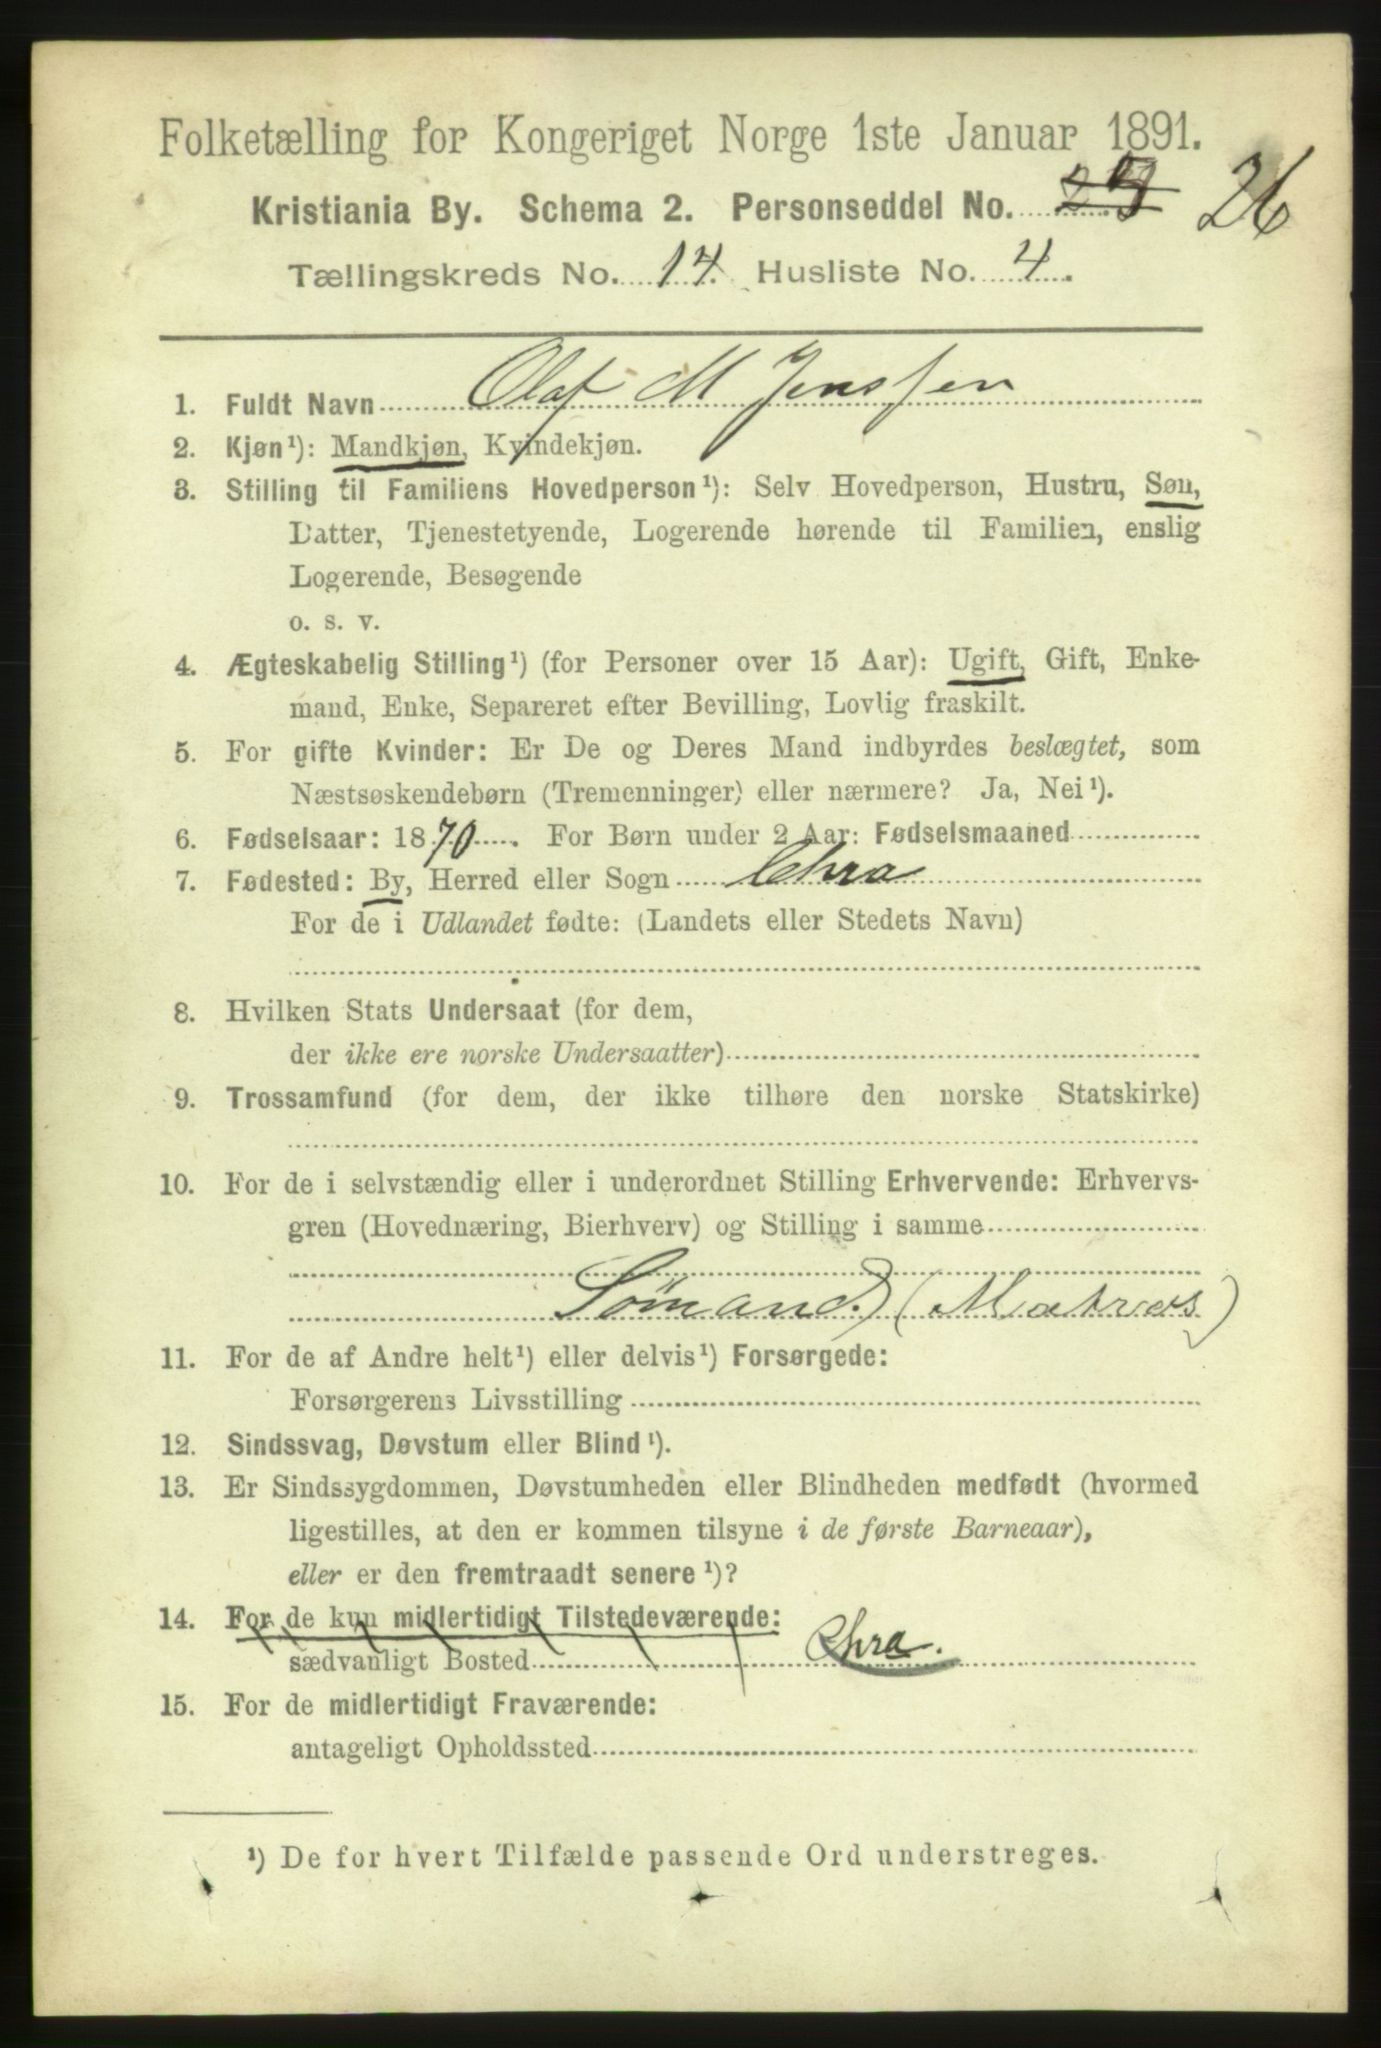 Folketælling for Kongeriget Norge 1ste Januar 1891.
Kristiania By. Schema 2. Personseddel No. 26
Tællingskreds No. 14. Husliste No. 4.
1. Fuldt Navn Olaf M Jenssen
2. Kjøn¹): Mandkjøn, Kvindekjøn.
3. Stilling til Familiens Hovedperson¹): Selv Hovedperson, Hustru, Søn,
Datter, Tjenestetyende, Logerende hørende til Familien, enslig
Logerende, Besøgende
o. s. v.
4. Ægteskabelig Stilling¹) (for Personer over 15 Aar): Ugift, Gift, Enke-
mand, Enke, Separeret efter Bevilling, Lovlig fraskilt.
5. For gifte Kvinder: Er De og Deres Mand indbyrdes beslægtet, som
Næstsøskendebørn (Tremenninger) eller nærmere? Ja, Nei¹).
6. Fødselsaar: 1870. For Børn under 2 Aar: Fødselsmaaned
7. Fødested: By, Herred eller Sogn Chra
For de i Udlandet fødte: (Landets eller Stedets Navn)
8. Hvilken Stats Undersaat (for dem,
der ikke ere norske Undersaatter)
9. Trossamfund (for dem, der ikke tilhøre den norske Statskirke)
10. For de i selvstændig eller i underordnet Stilling Erhvervende: Erhvervs-
gren (Hovednæring, Bierhverv) og Stilling i samme
Sømand. (Matros)
11. For de af Andre helt¹) eller delvis¹) Forsørgede:
Forsørgerens Livsstilling
12. Sindssvag, Døvstum eller Blind¹).
13. Er Sindssygdommen, Døvstumheden eller Blindheden medfødt (hvormed
ligestilles, at den er kommen tilsyne i de første Barneaar),
eller er den fremtraadt senere¹)?
14. For de kun midlertidigt Tilstedeværende:
sædvanligt Bosted Chra.
15. For de midlertidigt Fraværende:
antageligt Opholdssted
¹) De for hvert Tilfælde passende Ord understreges.